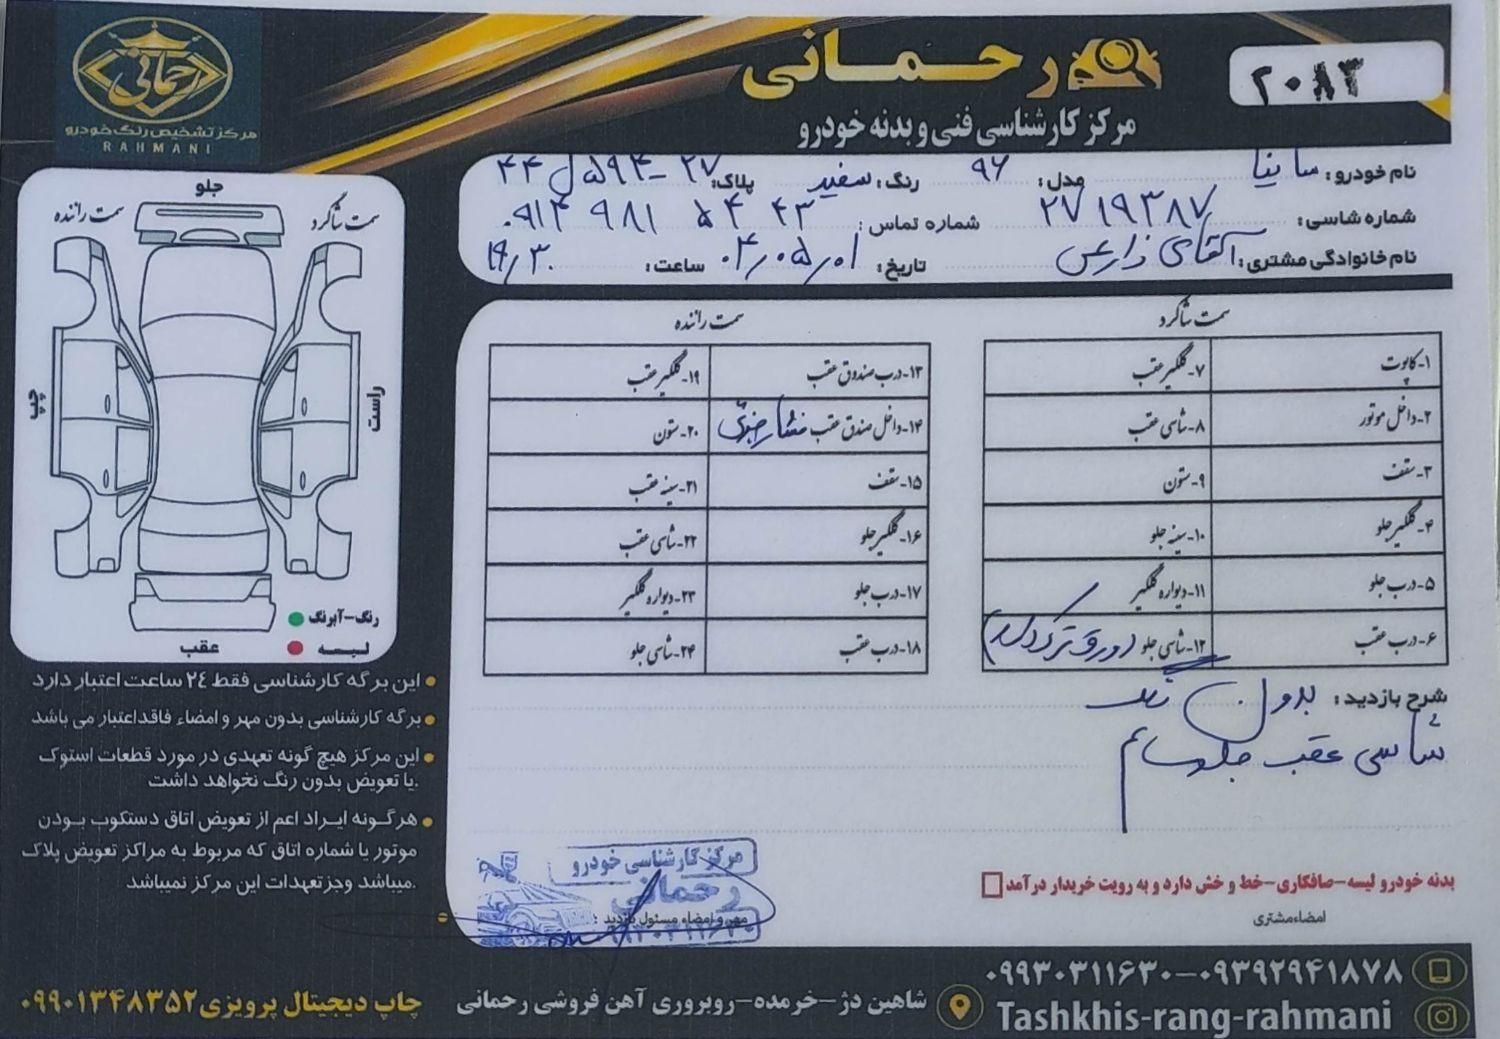 رحمانی
مرکز تشخیص رنگ خودرو
RAHMANI
رحمانی
مرکز کارشناسی فنی و بدنه خودرو
۲۰۸۳
نام خودرو: ساینا مدل: ۹۶ رنگ: سفید پلاک: ۲۷ - ۵۹۴ ل ۴۴
شماره شاسی: ۲۷۱۹۳۸۷ شماره تماس: ۰۹۱۴ ۹۸۱ ۵۴ ۴۳
نام خانوادگی مشتری: آقای زارعی تاریخ: ۰۴/۰۵/۰۱ ساعت: ۱۹/۳۰
جلو
سمت راننده سمت شاگرد
چپ
راست
رنگ-آبرنگ
لیسه
عقب
سمت شاگرد
۱-کاپوت ۷-گلگیر عقب
۲-داخل موتور ۸-شاسی عقب
۳-سقف ۹-ستون
۴-گلگیر جلو ۱۰-سینه جلو
۵-درب جلو ۱۱-دیواره گلگیر
۶-درب عقب ۱۲-شاسی جلو
سمت راننده
۱۳-درب صندوق عقب ۱۹-گلگیر عقب
۱۴-داخل صندوق عقب ۲۰-ستون
۱۵-سقف ۲۱-سینه عقب
۱۶-گلگیر جلو ۲۲-شاسی عقب
۱۷-درب جلو ۲۳-دیواره گلگیر
۱۸-درب عقب ۲۴-شاسی جلو
شرح بازدید: بدون رنگ
شاسی عقب جلو سالم
این برگه کارشناسی فقط ۲۴ ساعت اعتبار دارد
برگه کارشناسی بدون مهر و امضاء فاقد اعتبار می باشد
این مرکز هیچ گونه تعهدی در مورد قطعات استوک
یا تعویض بدون رنگ نخواهد داشت.
هرگونه ایراد اعم از تعویض اتاق دستکوب بودن
موتور یا شماره اتاق که مربوط به مراکز تعویض پلاک
میباشد وجز تعهدات این مرکز نمیباشد.
بدنه خودرو لیسه-صافکاری-خط و خش دارد و به رویت خریدار در آمد
امضاء مشتری
مرکز کارشناسی خودرو
رحمانی
مهر و امضاء مسئول بازدید :
۰۹۹۳۰۳۱۱۶۳۰-۰۹۳۹۲۹۴۱۸۷۸
Tashkhis-rang-rahmani
شاهین دژ-خرمده-روبروری آهن فروشی رحمانی
چاپ دیجیتال پرویزی ۰۹۹۰۱۳۴۸۳۵۲